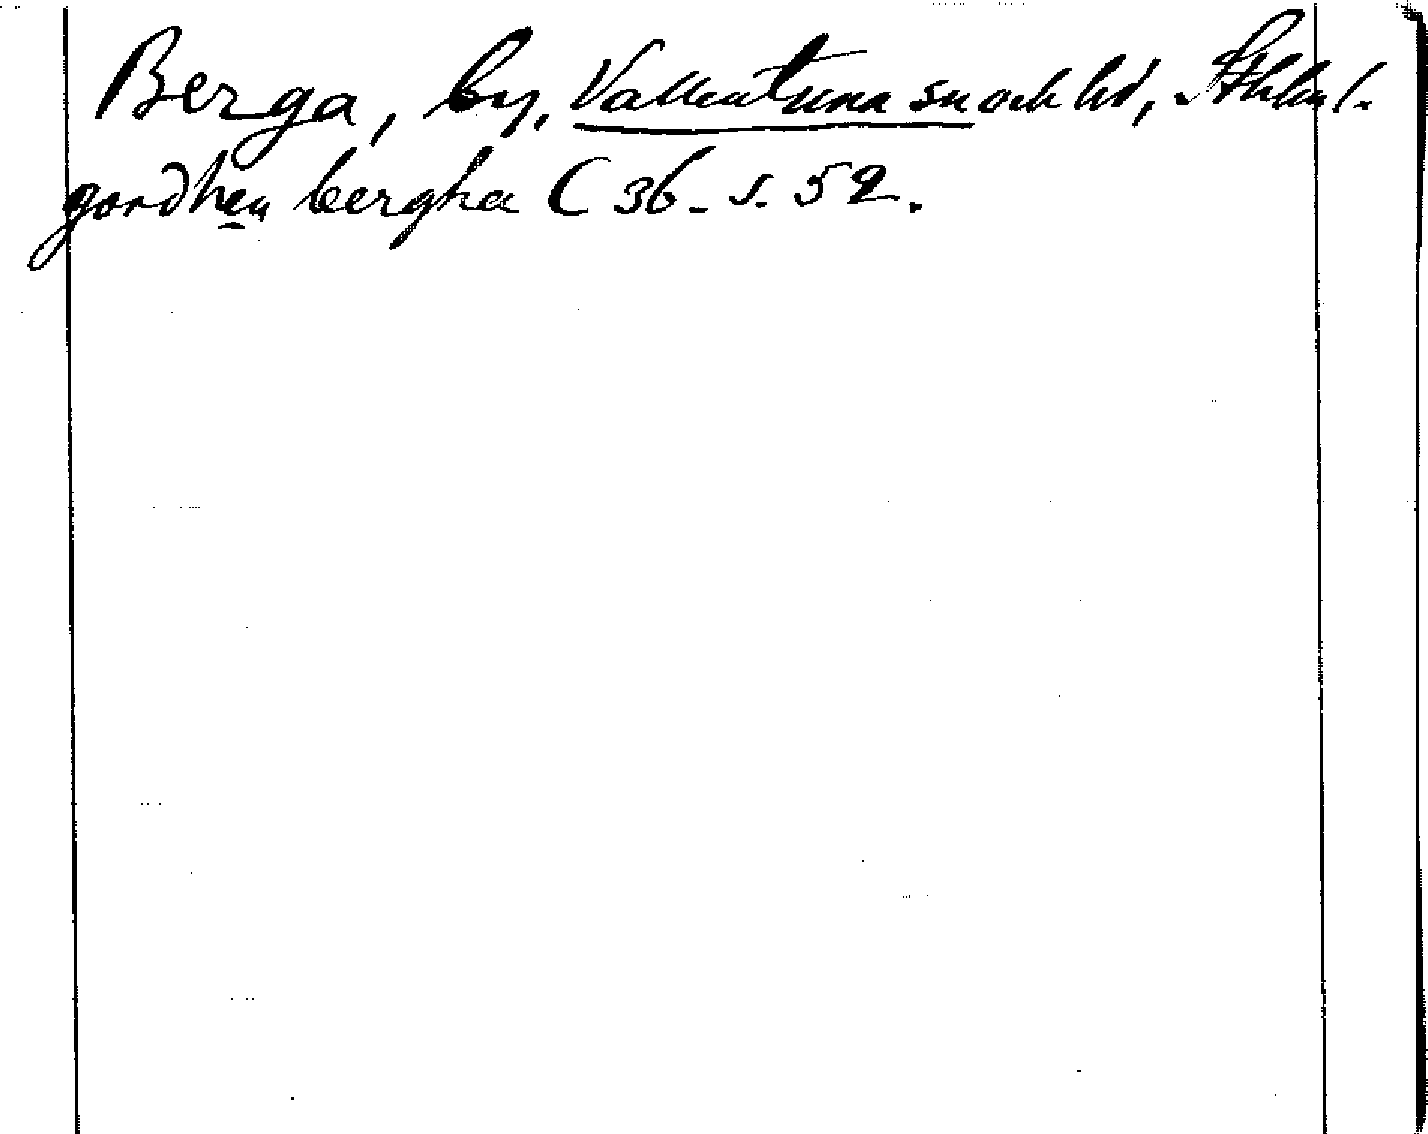 Berga, by, Vallentuna sn och hd, Sthlms l.
gordhen bergha C 36. s. 52.